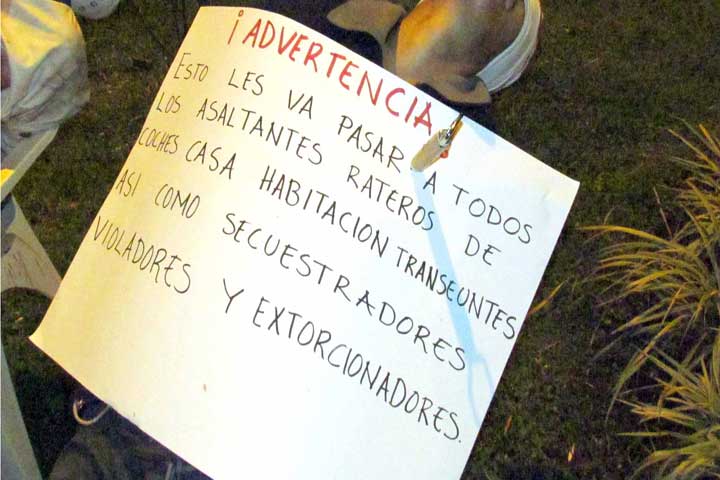 ¡ADVERTENCIA!
ESTO LES VA PASAR A TODOS
LOS ASALTANTES RATEROS DE
COCHES CASA HABITACION TRANSEUNTES
ASI COMO SECUESTRADORES
VIOLADORES Y EXTORCIONADORES.